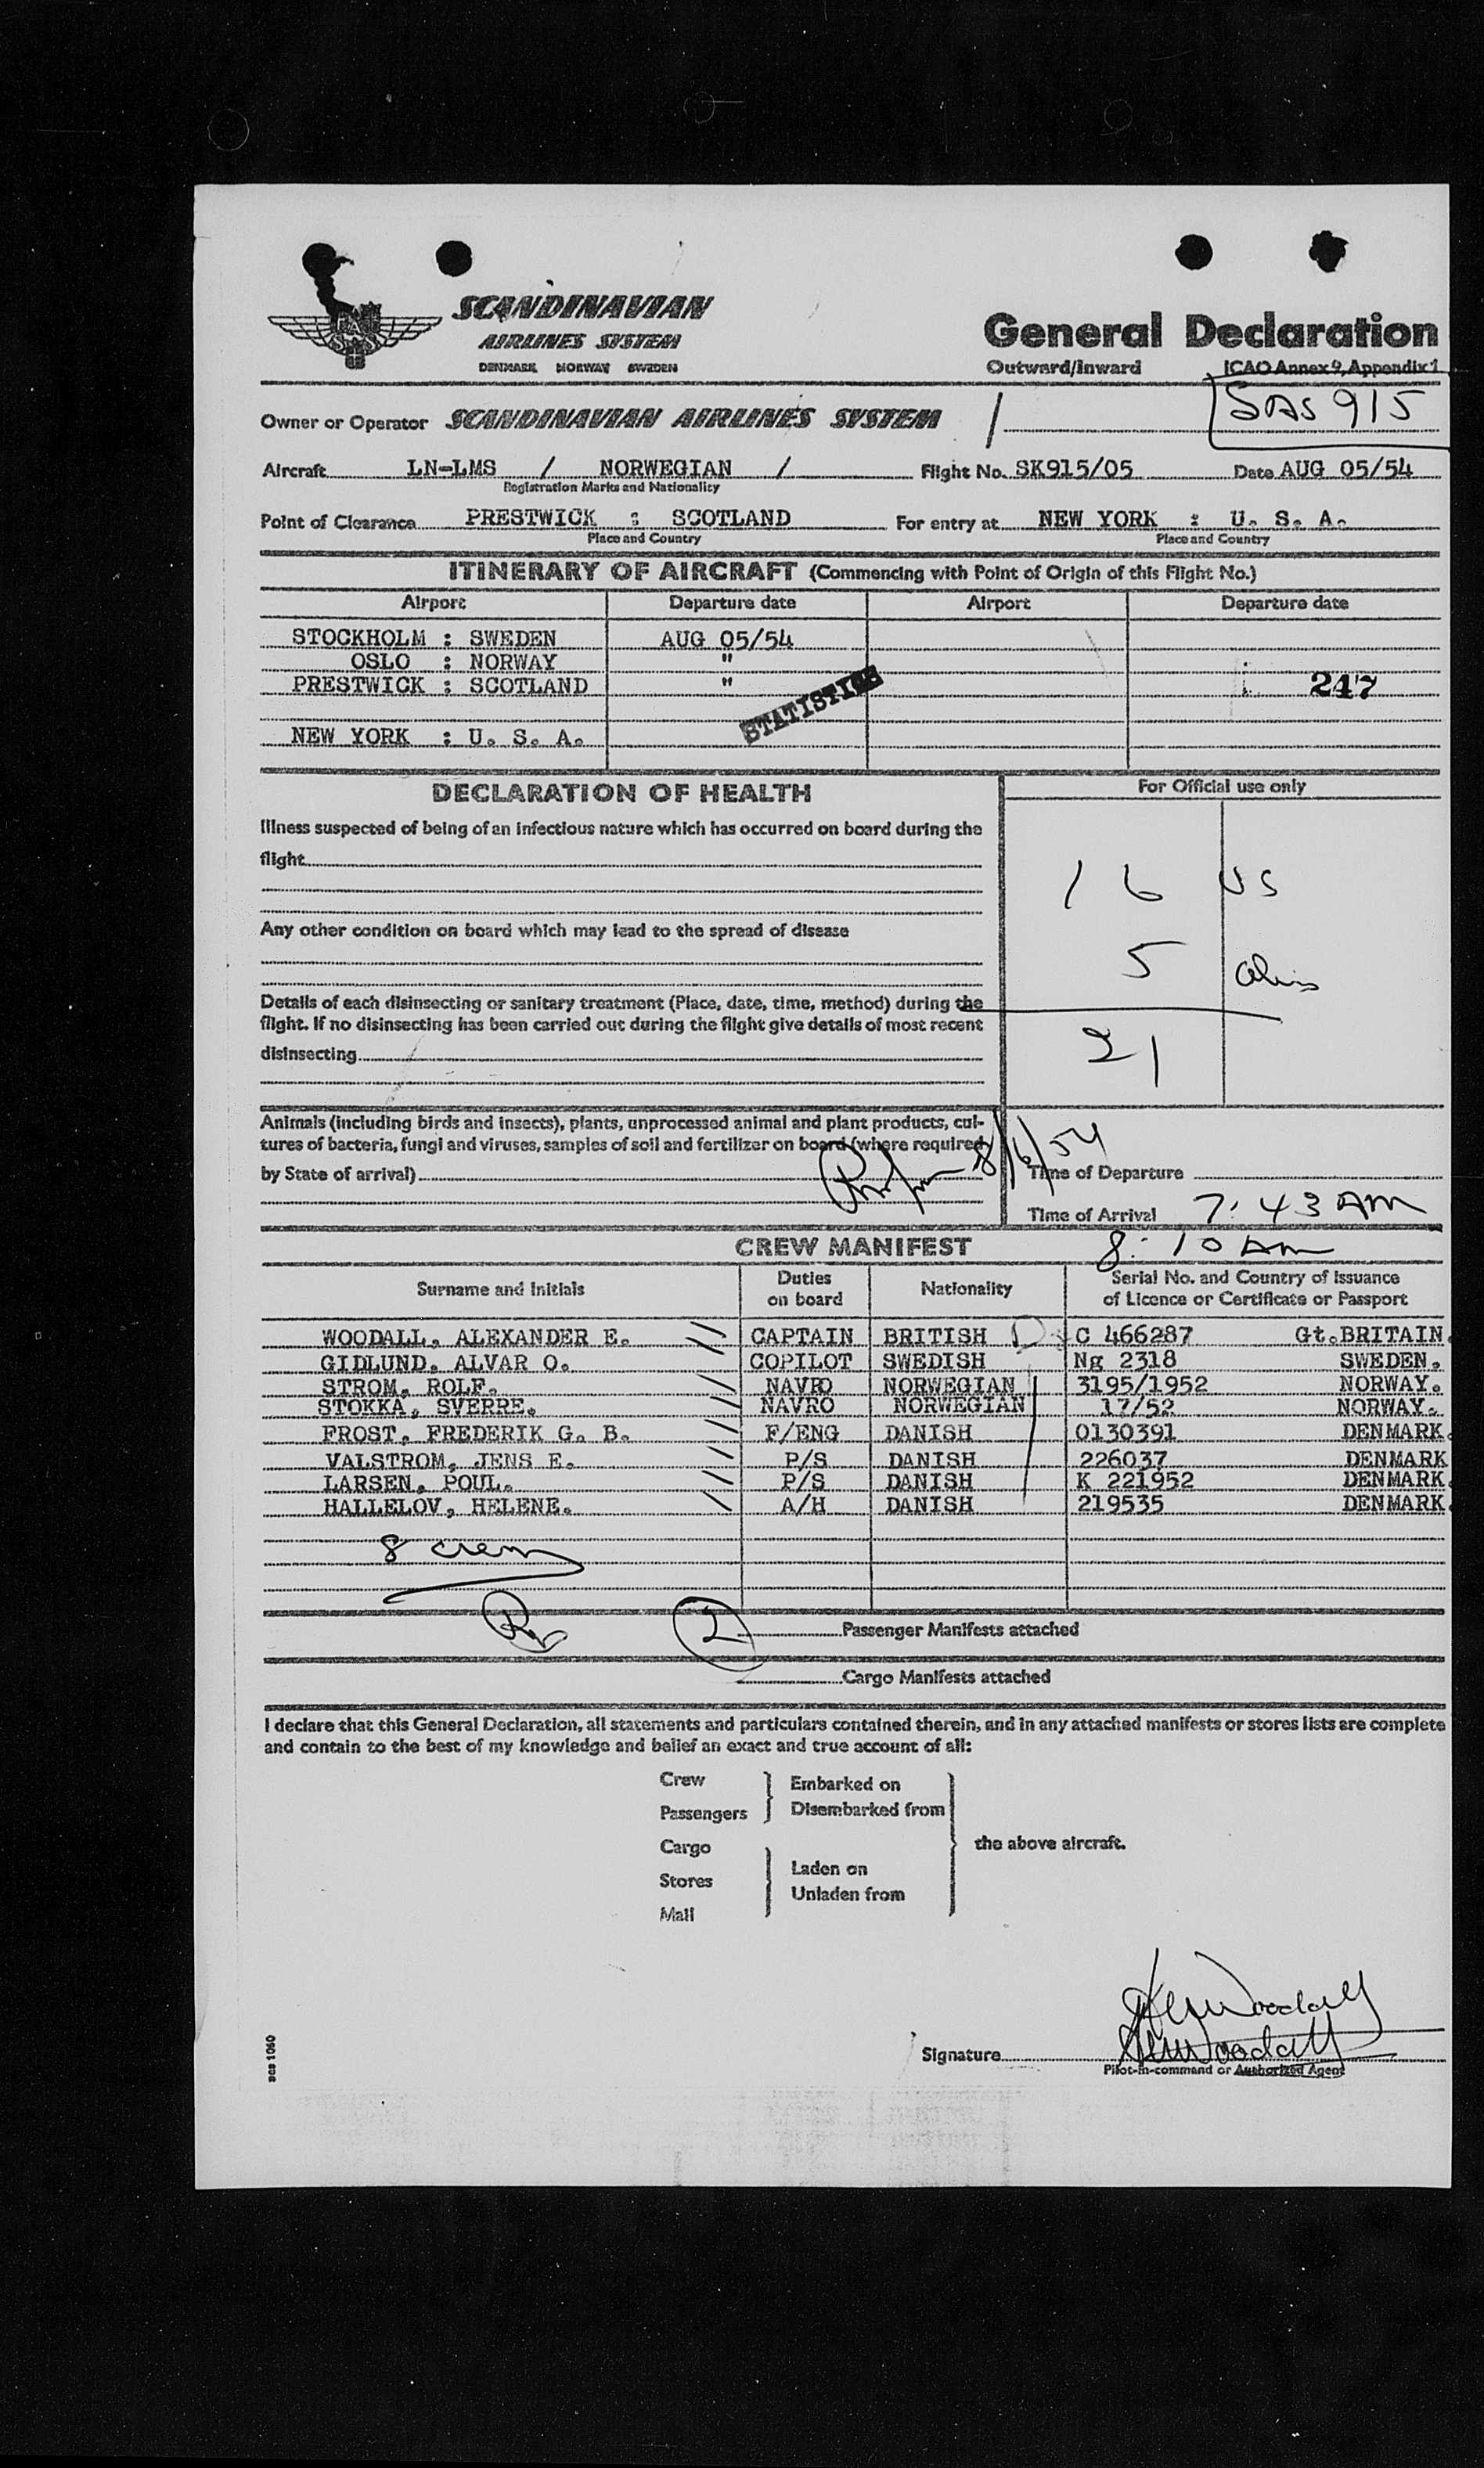 SCANDINAVIAN
AIRLINES SYSTEM
DENMARK NORWAY SWEDEN
General Declaration
Outward/Inward ICAO Annex 9, Appendix 1
SAS 915
Owner or Operator SCANDINAVIAN AIRLINES SYSTEM /
Aircraft LN-LMS / NORWEGIAN / Flight No. SK915/05 Date AUG 05/54
Registration Marks and Nationality
Point of Clearance PRESTWICK : SCOTLAND For entry at NEW YORK : U. S. A.
Place and Country Place and Country
ITINERARY OF AIRCRAFT (Commencing with Point of Origin of this Flight No.)
Airport Departure date Airport Departure date
STOCKHOLM : SWEDEN AUG 05/54
OSLO : NORWAY "
PRESTWICK : SCOTLAND " 247
STATISTICS
NEW YORK : U. S. A.
DECLARATION OF HEALTH For Official use only
Illness suspected of being of an infectious nature which has occurred on board during the
flight
16 US
Any other condition on board which may lead to the spread of disease
5
Details of each disinsecting or sanitary treatment (Place, date, time, method) during the
flight. If no disinsecting has been carried out during the flight give details of most recent
disinsecting
21
Animals (including birds and insects), plants, unprocessed animal and plant products, cul-
tures of bacteria, fungi and viruses, samples of soil and fertilizer on board (where required
by State of arrival)
8/6/54
Time of Departure
Time of Arrival 7:43 AM
8:10 Am
CREW MANIFEST
Surname and Initials Duties on board Nationality Serial No. and Country of Issuance of Licence or Certificate or Passport
WOODALL, ALEXANDER E. CAPTAIN BRITISH C 466287 Gt.BRITAIN.
GIDLUND. ALVAR O. COPILOT SWEDISH Ng 2318 SWEDEN.
STROM, ROLF. NAVRO NORWEGIAN 3195/1952 NORWAY.
STOKKA, SVERRE. NAVRO NORWEGIAN 17/52 NORWAY.
FROST, FREDERIK G. B. F/ENG DANISH 0130391 DENMARK.
VALSTROM, JENS E. P/S DANISH 226037 DENMARK
LARSEN, POUL. P/S DANISH K 221952 DENMARK.
HALLELOV, HELENE. A/H DANISH 219535 DENMARK.
8 crew
2 Passenger Manifests attached
Cargo Manifests attached
I declare that this General Declaration, all statements and particulars contained therein, and in any attached manifests or stores lists are complete
and contain to the best of my knowledge and belief an exact and true account of all:
Crew
Passengers
Embarked on
Disembarked from
Cargo
Stores
Mail
Laden on
Unladen from
the above aircraft.
Signature
Pilot-in-command or Authorized Agent
scs 1060